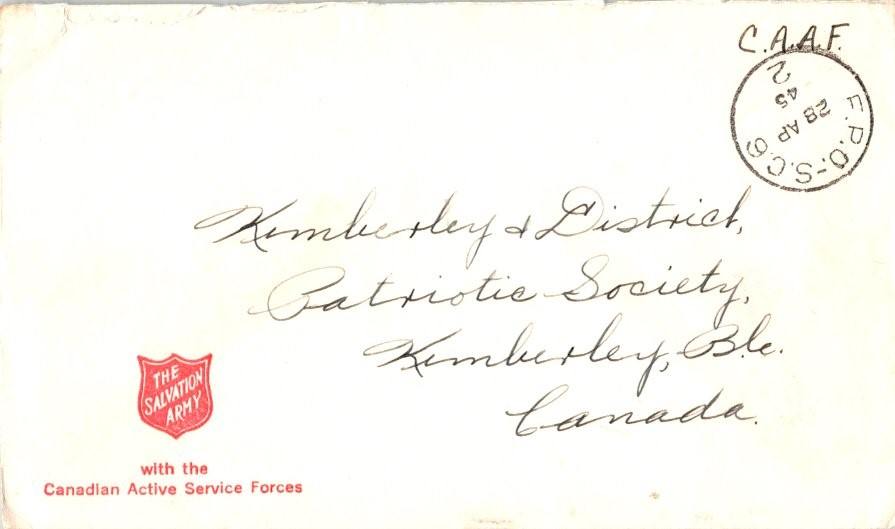 C.A.A.F.
F.P.O.-S.C.6
28 AP
45
2
Kimberley & District,
Patriotic Society,
Kimberley, B.C.
Canada.
THE
SALVATION
ARMY
with the
Canadian Active Service Forces